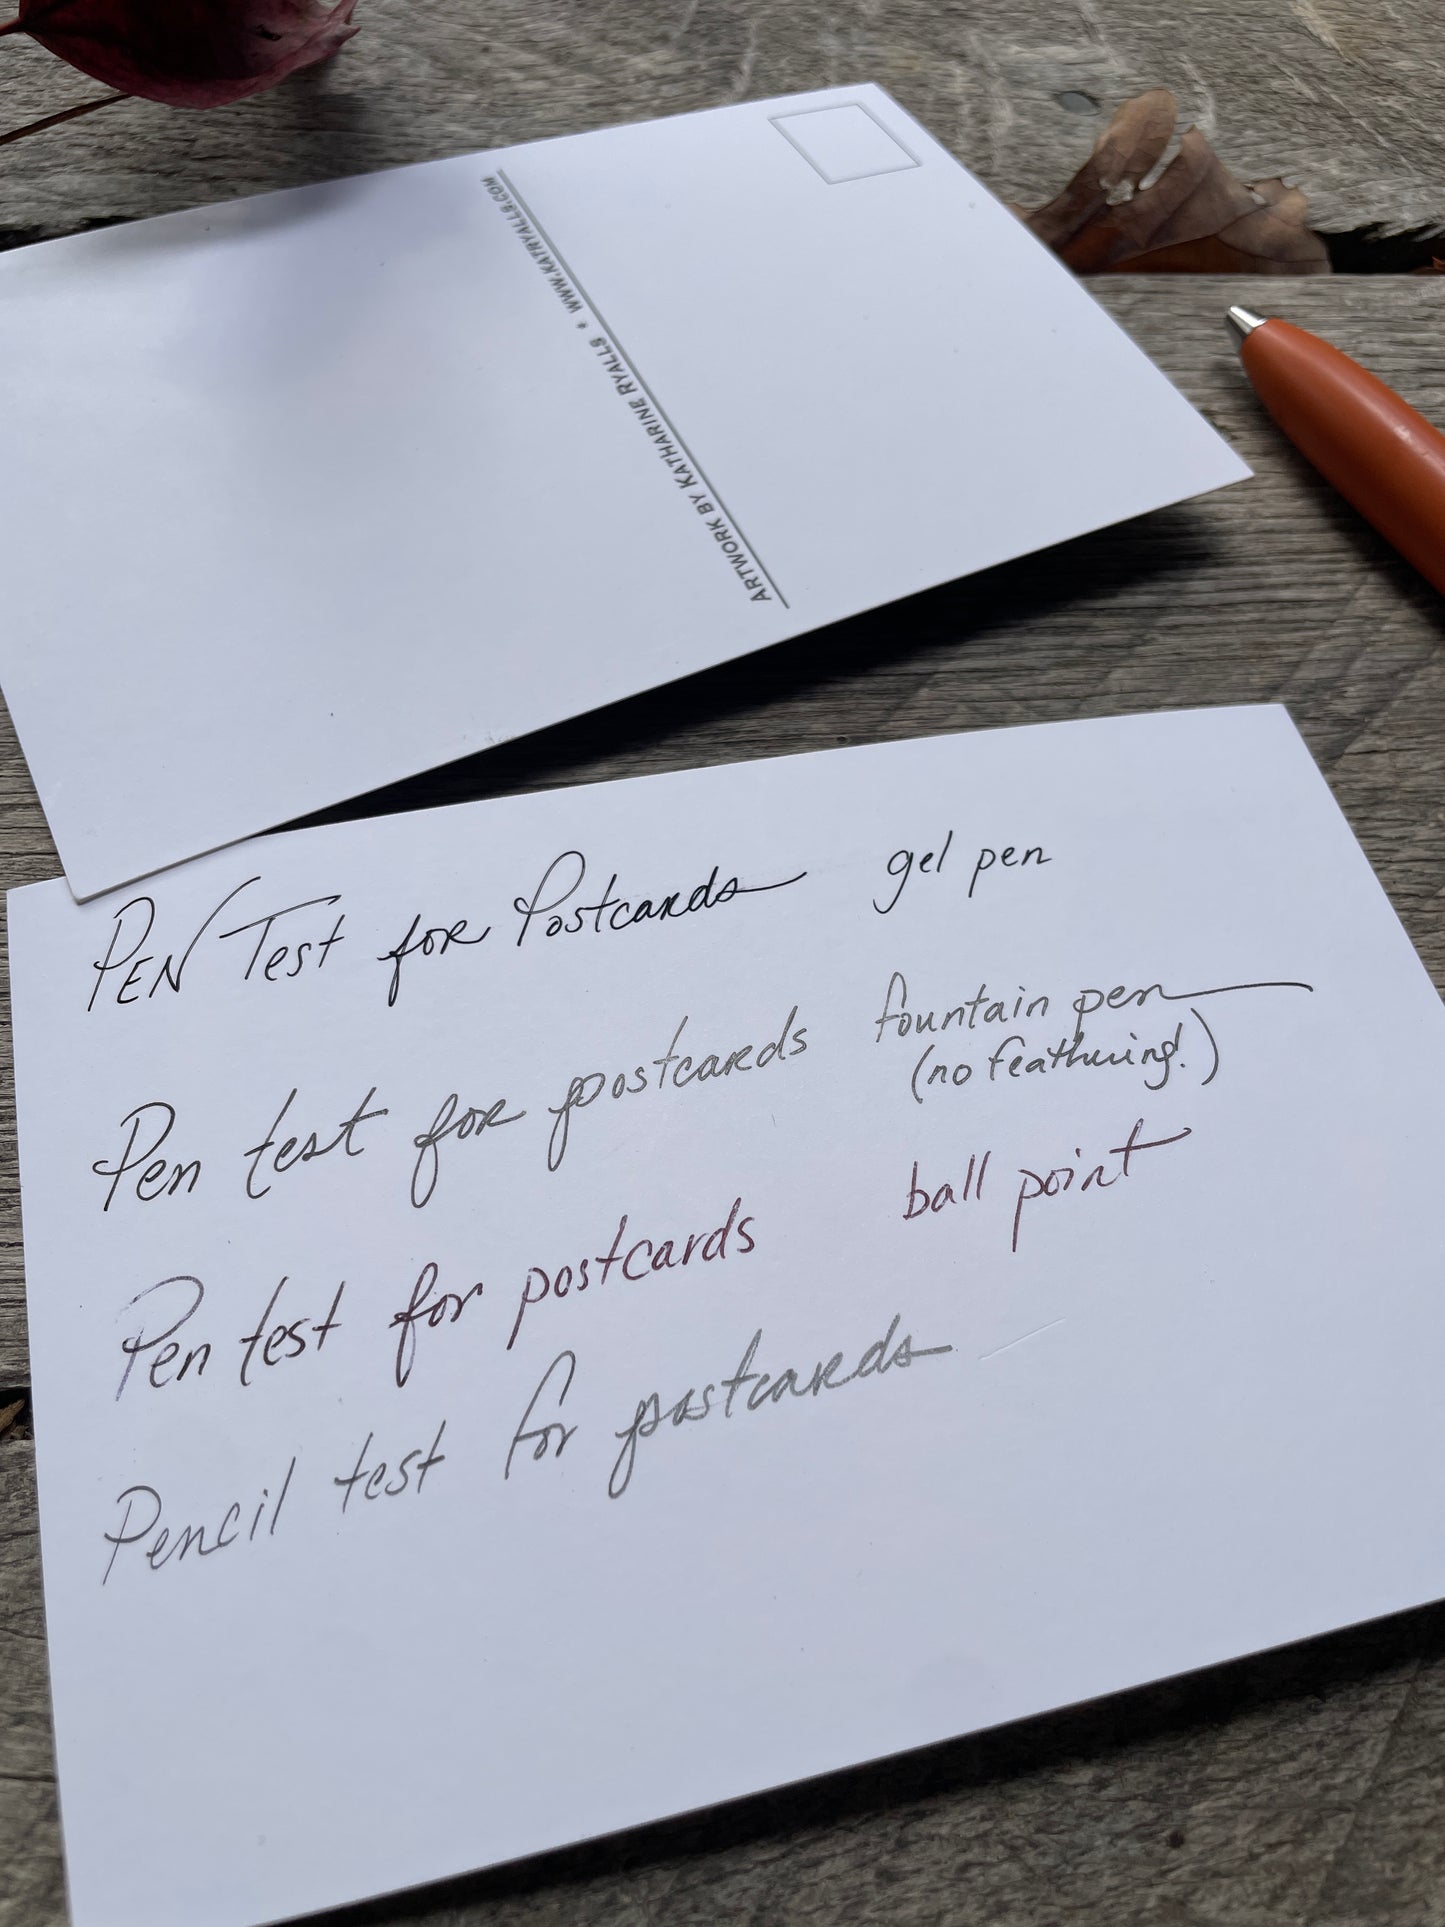 ARTWORK BY KATHARINE RYALLS * WWW.KATRYALLS.COM
PEN Test for Postcards gel pen
Pen test for postcards fountain pen
(no feathering!)
Pen test for postcards ball point
Pencil test for postcards